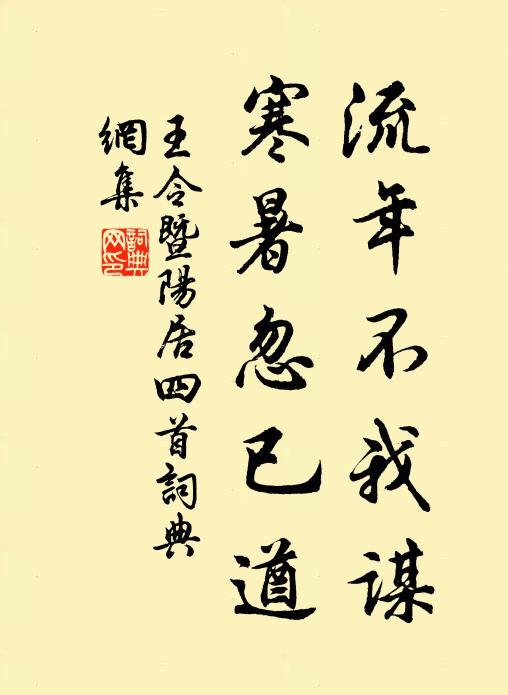 流年不我謀
寒暑忽已遒
王令暨陽居四首詞典
網集
詞典
网印